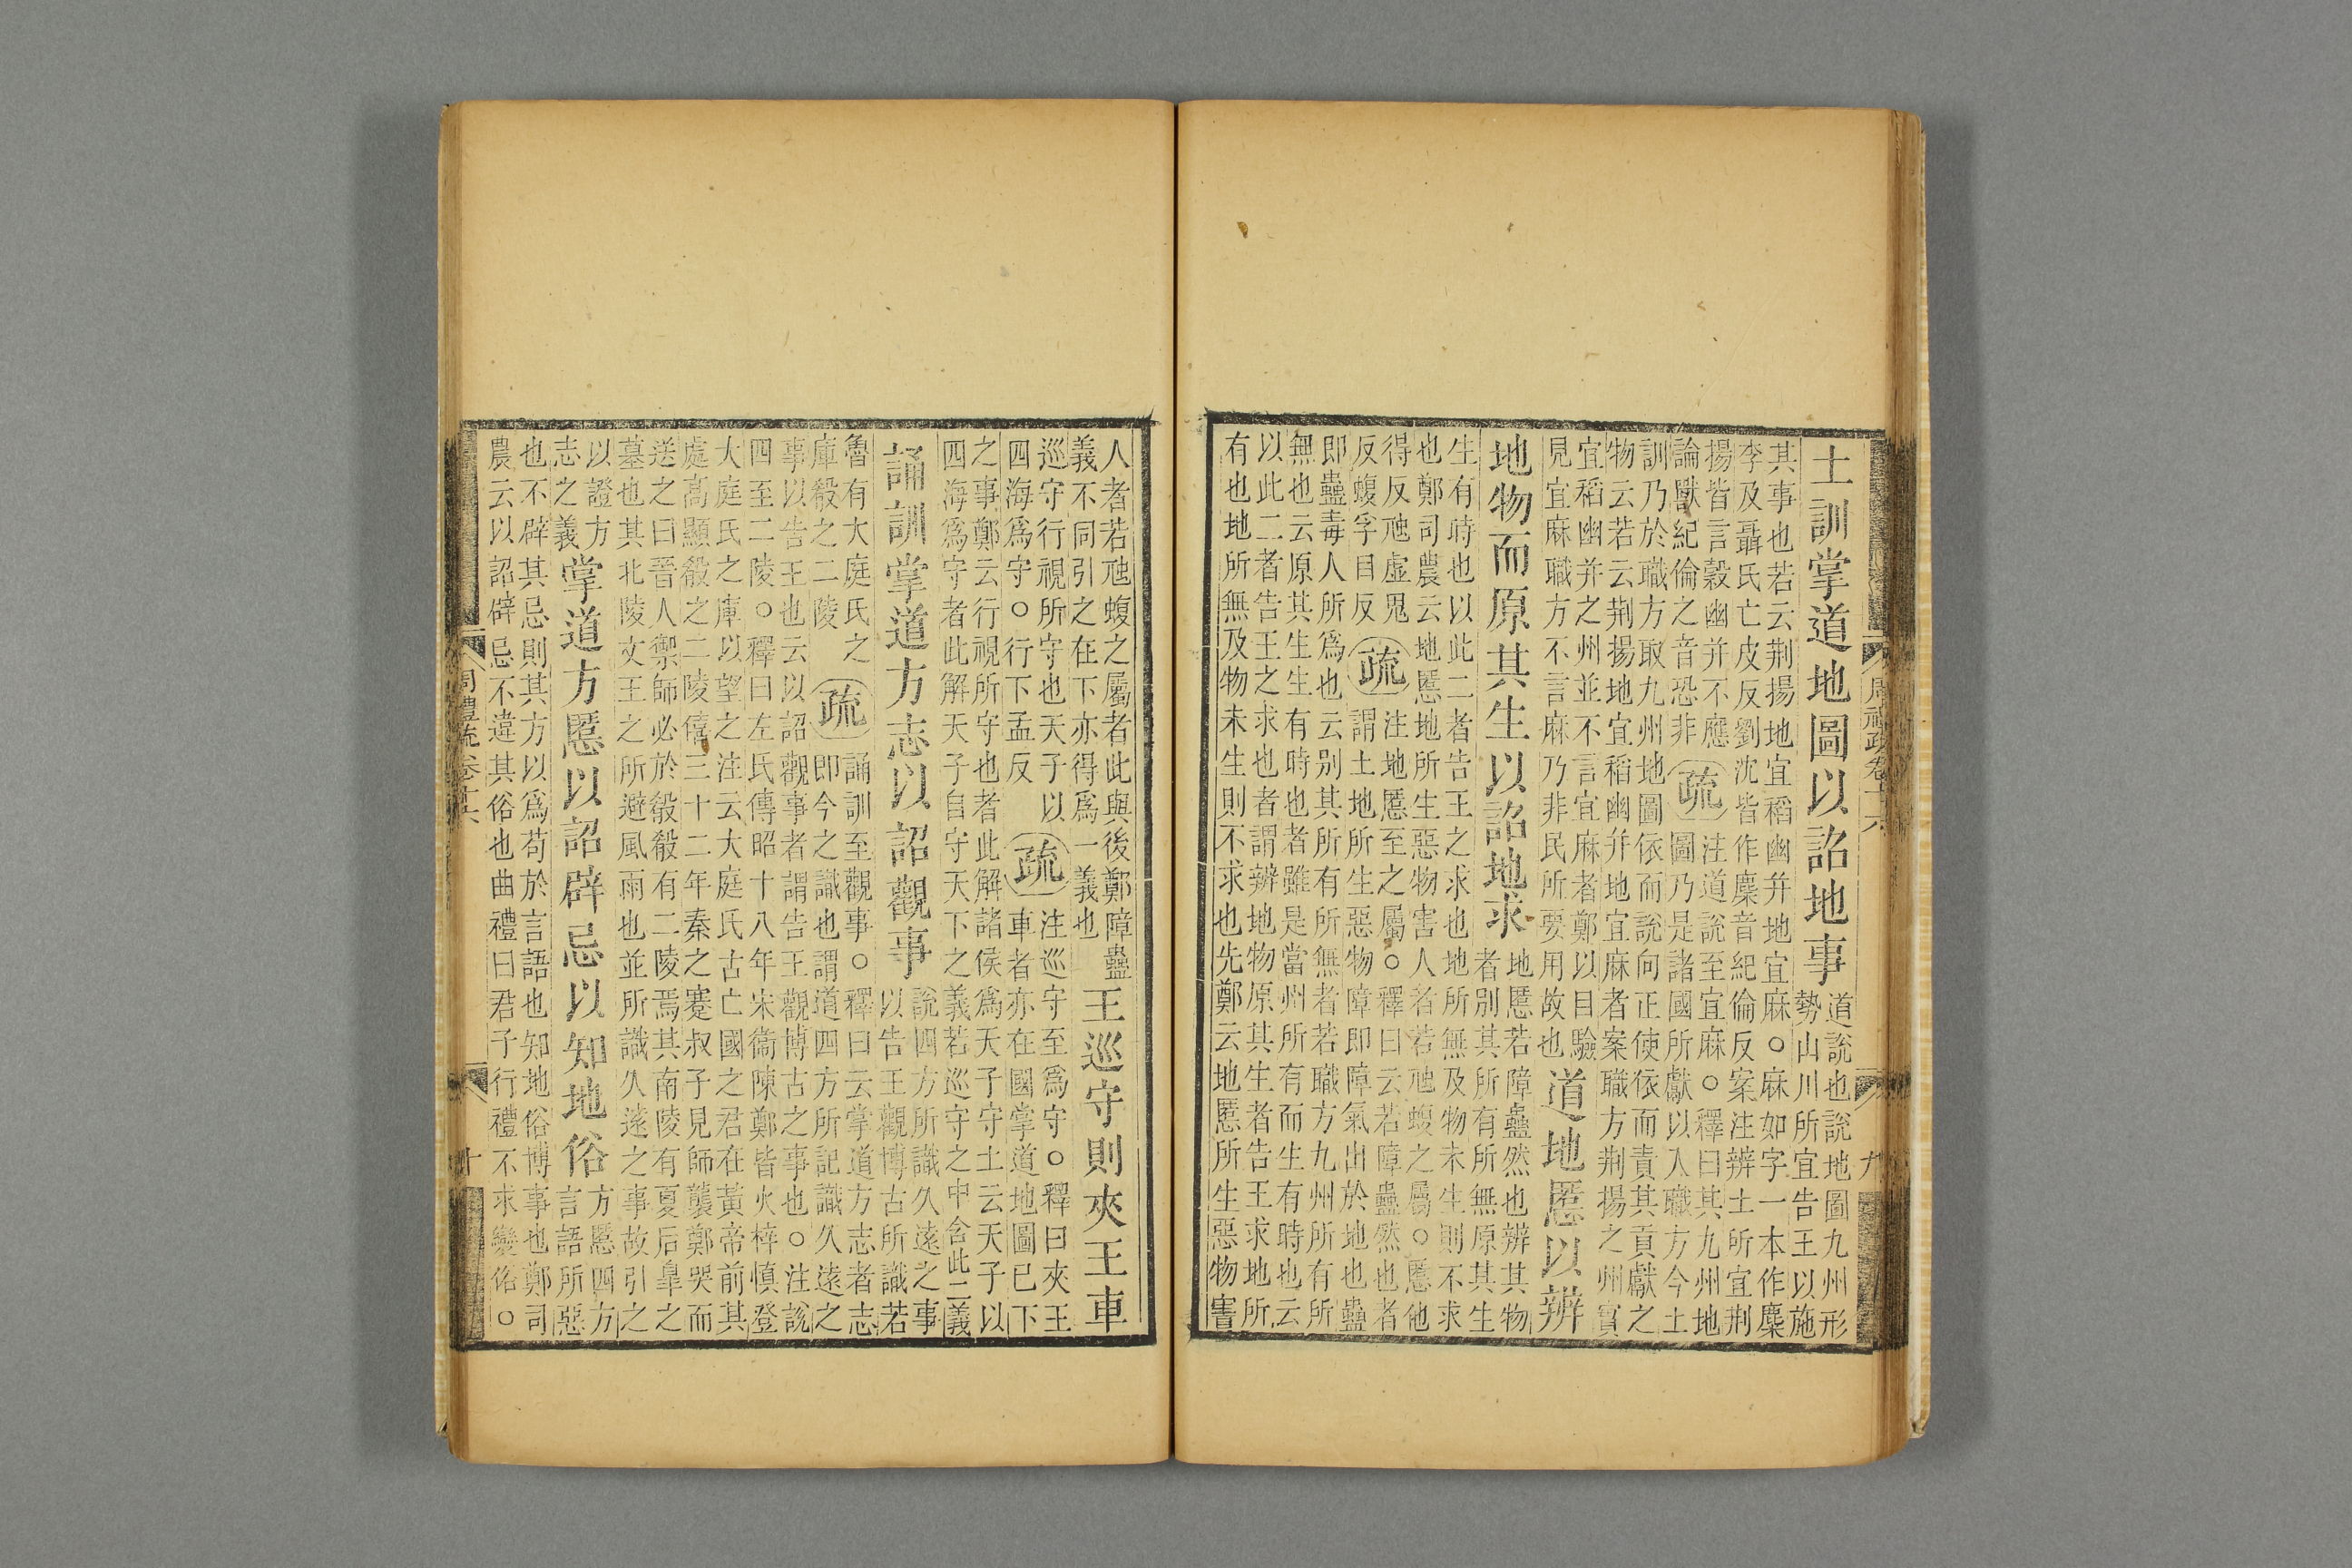 周禮疏卷十六　九
土訓掌道地圖以詔地事
道說也說地圖九州形
勢山川所宜告王以施
其事也若云荆揚地宜稻幽并地宜麻○麻如字一本作麇
李及聶氏亡皮反劉沈皆作麇音紀倫反案注辨土所宜荆
揚皆言穀幽并不應
論獸紀倫之音恐非
疏
注道說至宜麻○釋曰其九州地
圖乃是諸國所獻以入職方今土
訓乃於職方取九州地圖依而說向正使依而責其貢獻之
物云若云荆揚地宜稻幽并地宜麻者案職方荆揚之州實
宜稻幽并之州並不言宜麻者鄭以目驗
見宜麻職方不言麻乃非民所要用故也
道地慝以辨
地物而原其生以詔地求
地慝若障蠱然也辨其物
者別其所有所無原其生
生有時也以此二者告王之求也地所無及物未生則不求
也鄭司農云地慝地所生惡物害人者若虺蝮之屬○慝他
得反虺虛鬼
反蝮孚目反
疏
注地慝至之屬○釋曰云若障蠱然也者
謂土地所生惡物障即障氣出於地也蠱
即蠱毒人所爲也云別其所有所無者若職方九州所有所
無也云原其生生有時也者雖是當州所有而生有時也云
以此二者告王之求也者謂辨地物原其生者告王求地所
有也地所無及物未生則不求也先鄭云地慝所生惡物害
人者若虺蝮之屬者此與後鄭障蠱
義不同引之在下亦得爲一義也
王巡守則夾王車
巡守行視所守也天子以
四海爲守○行下孟反
疏
注巡守至爲守○釋曰夾王
車者亦在國掌道地圖已下
之事鄭云行視所守也者此解諸侯爲天子守土云天子以
四海爲守者此解天子自守天下之義若巡守之中含此二義
誦訓掌道方志以詔觀事
說四方所識久遠之事
以告王觀博古所識若
魯有大庭氏之
庫殽之二陵
疏
誦訓至觀事○釋曰云掌道方志者志
即今之識也謂道四方所記識久遠之
事以告王也云以詔觀事者謂告王觀博古之事也○注說
四至二陵○釋曰左氏傳昭十八年宋衞陳鄭皆火梓慎登
大庭氏之庫以望之注云大庭氏古亡國之君在黃帝前其
處高顯殽之二陵僖三十二年秦之蹇叔子見師襲鄭哭而
送之曰晉人禦師必於殽殽有二陵焉其南陵有夏后皐之
墓也其北陵文王之所避風雨也並所識久遠之事故引之
以證方
志之義
掌道方慝以詔辟忌以知地俗
方慝四方
言語所惡
也不辟其忌則其方以爲苟於言語也知地俗博事也鄭司
農云以詔辟忌不違其俗也曲禮曰君子行禮不求變俗○
周禮疏卷十六　十